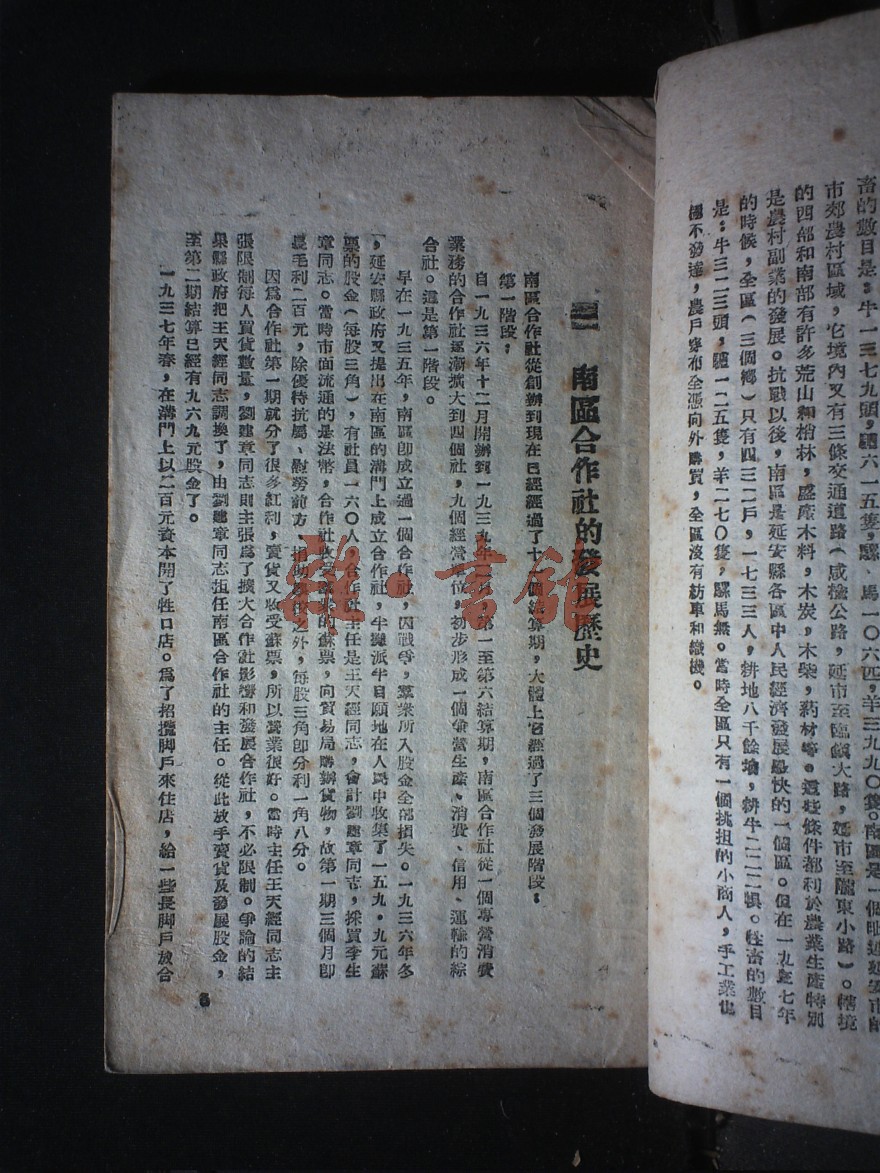 畜的數目是:牛一三七九頭,驢六一五隻,騾 馬一〇六匹,羊三九九〇隻。南區是一個毗連延安市的
市郊農村區域,它境內又有三條交通道路(咸榆公路,延市至臨鎮大路,延市至隴東小路)。轄境
的西部和南部有許多荒山和梢林,盛產木料,木炭,木柴,葯材等。這些條件都利於農業生產特別
是農村副業的發展。抗戰以後,南區是延安縣各區中人民經濟發展最快的一個區。但在一九三七年
的時候,全區(三個鄉)只有四三二戶,一七三三人,耕地八千餘垧,耕牛二二二犋。牲畜的數目
是:牛三一三頭,驢一二五隻,羊二七〇隻,騾馬無。當時全區只有一個挑担的小商人,手工業也
極不發達,農戶穿布全憑向外購買,全區沒有紡車和織機。
二 南區合作社的發展歷史
南區合作社從創辦到現在已經經過了十一個結算期,大體上它經過了三個發展階段:
第一階段:
自一九三六年十二月開辦到一九三九年 月第一至第六結算期,南區合作社從一個專營消費
業務的合作社逐漸擴大到四個社,九個經營單位,初步形成一個兼營生產、消費、信用、運輸的綜
合社。這是第一階段。
早在一九三五年,南區卽成立過一個合作社,因戰爭,羣衆所入股金全部損失。一九三六年冬
,延安縣政府又提出在南區的溝門上成立合作社,半攤派半自願地在人民中收集了一五九·九元蘇
票的股金(每股三角),有社員一六〇人,合作社主任是王天經同志,會計劉建章同志,採買李生
章同志。當時市面流通的是法幣,合作社收受 的蘇票,向貿易局購辦貨物,故第一期三個月卽
長毛利二百元,除優待抗屬、慰勞前方、捐助 之外,每股三角卽分利一角八分。
因爲合作社第一期就分了很多紅利,賣貨又收受蘇票,所以營業很好。當時主任王天經同志主
張限制每人買貨數量,劉建章同志則主張爲了擴大合作社影響和發展合作社,不必限制。爭論的結
果縣政府把王天經同志調換了,由劉建章同志担任南區合作社的主任。從此放手賣貨及發展股金,
至第二期結算已經有九六九元股金了。
一九三七年春,在溝門上以二百元資本開了牲口店。爲了招攬脚戶來住店,給一些長脚戶放合
雜·書館